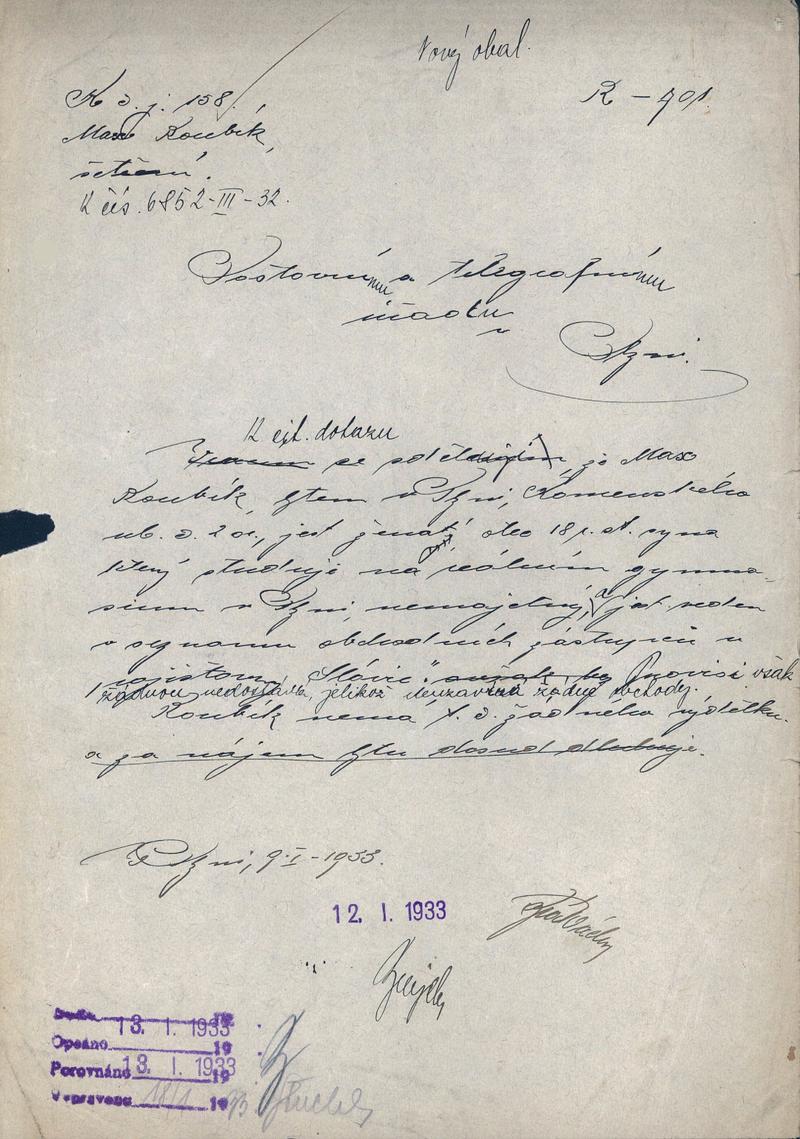 Nový obal.
K d. j. 158.
R – 401.
Max Koubík,
šetření.
K čís. 6852-III-32.
Poštovnímu a telegrafnímu
úřadu
v
Plzni.
K cit. dotazu
se sděluje, že Max
Koubík, bytem v Plzni, Komenského
ul. č. 2 jest ženat, otec 18 r. st. syna
který studuje na reálném gymna-
siu v Plzni, nemajetný, a jest veden
v seznamu obchodních zástupců u
pojišťovny „Slavie“. Provisi však
žádnou nedostává, jelikož neuzavírá žádné obchody.
Koubík nemá t. č. žádného výdělku.
a za nájem bytu dosud dluhuje.
V Plzni, 9-I-1933.
12. I. 1933
13. I. 1933
Opsáno 19
Porovnáno 13. I. 1933
Vypraveno 19